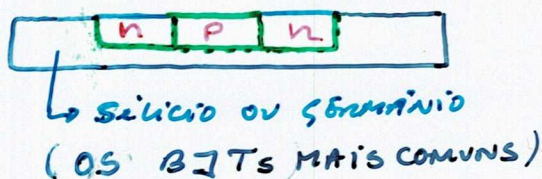 n p n
SILÍCIO OU GERMÂNIO
(OS BJTs MAIS COMUNS)